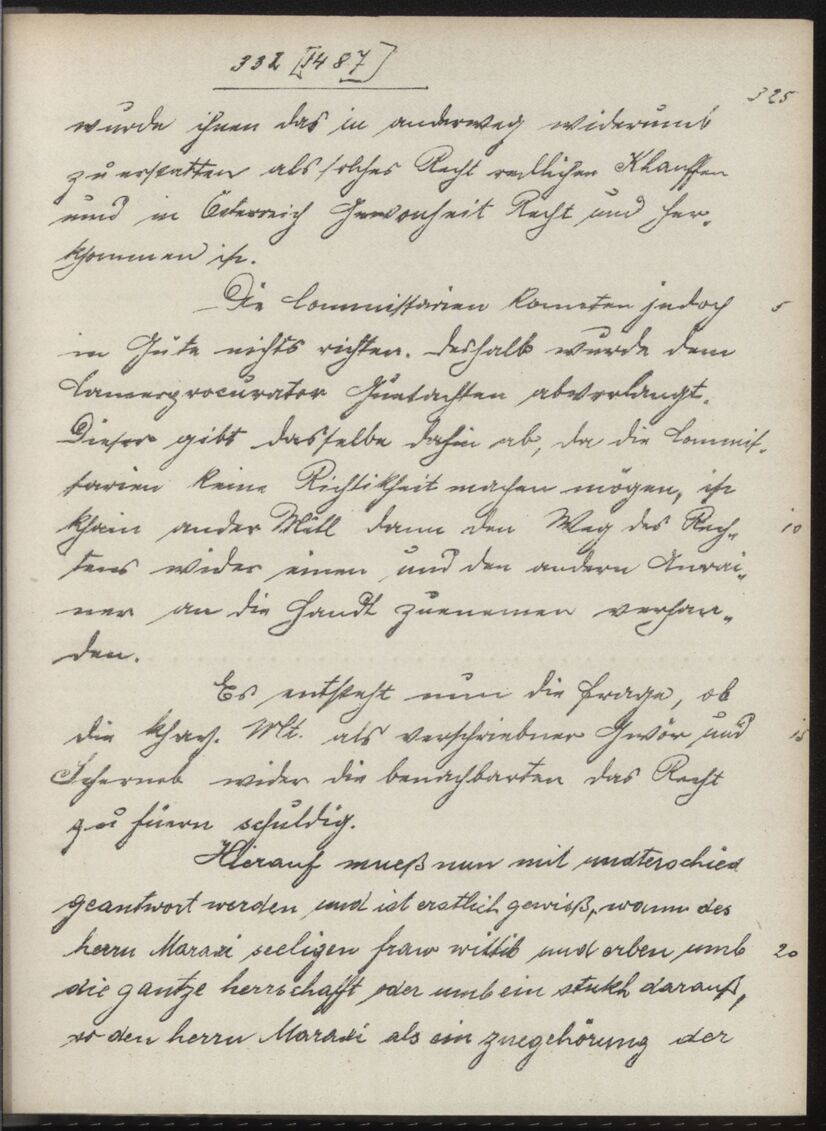 332 [1487]
325
wurde ihnen das in anderweg widerumb
zu erstatten als solches Recht redlichen Khauffen
unnd in Österreich Gewonheit Recht und her-
khommen ist.
Die Commissarien konnten jedoch 5
in Güte nichts richten. Deshalb wurde dem
Camerprocurator Guetachten abverlangt.
Dieser gibt dasselbe dahin ab, da die Commis-
sarien keine Richtikheit machen mögen, ist
khain ander Mitl dann den Weg des Rech- 10
tens wider einen und den andern Anrai-
ner an die Handt zuenemen verhan-
den.
Es entsteht nun die Frage, ob
die khay. Mt. als verschriebner Gwör und 15
Schermb wider die benachbarten das Recht
zu füern schuldig.
Hierauf mueß nun mit undterschied
geantwort werden und ist erstlich gewiß, wann des
herrn Maraxi seeligen fraw wittib und erben umb 20
die gantze herrschafft oder umb ein stukh darauß,
so den herrn Maraxi als ein zuegehörung der